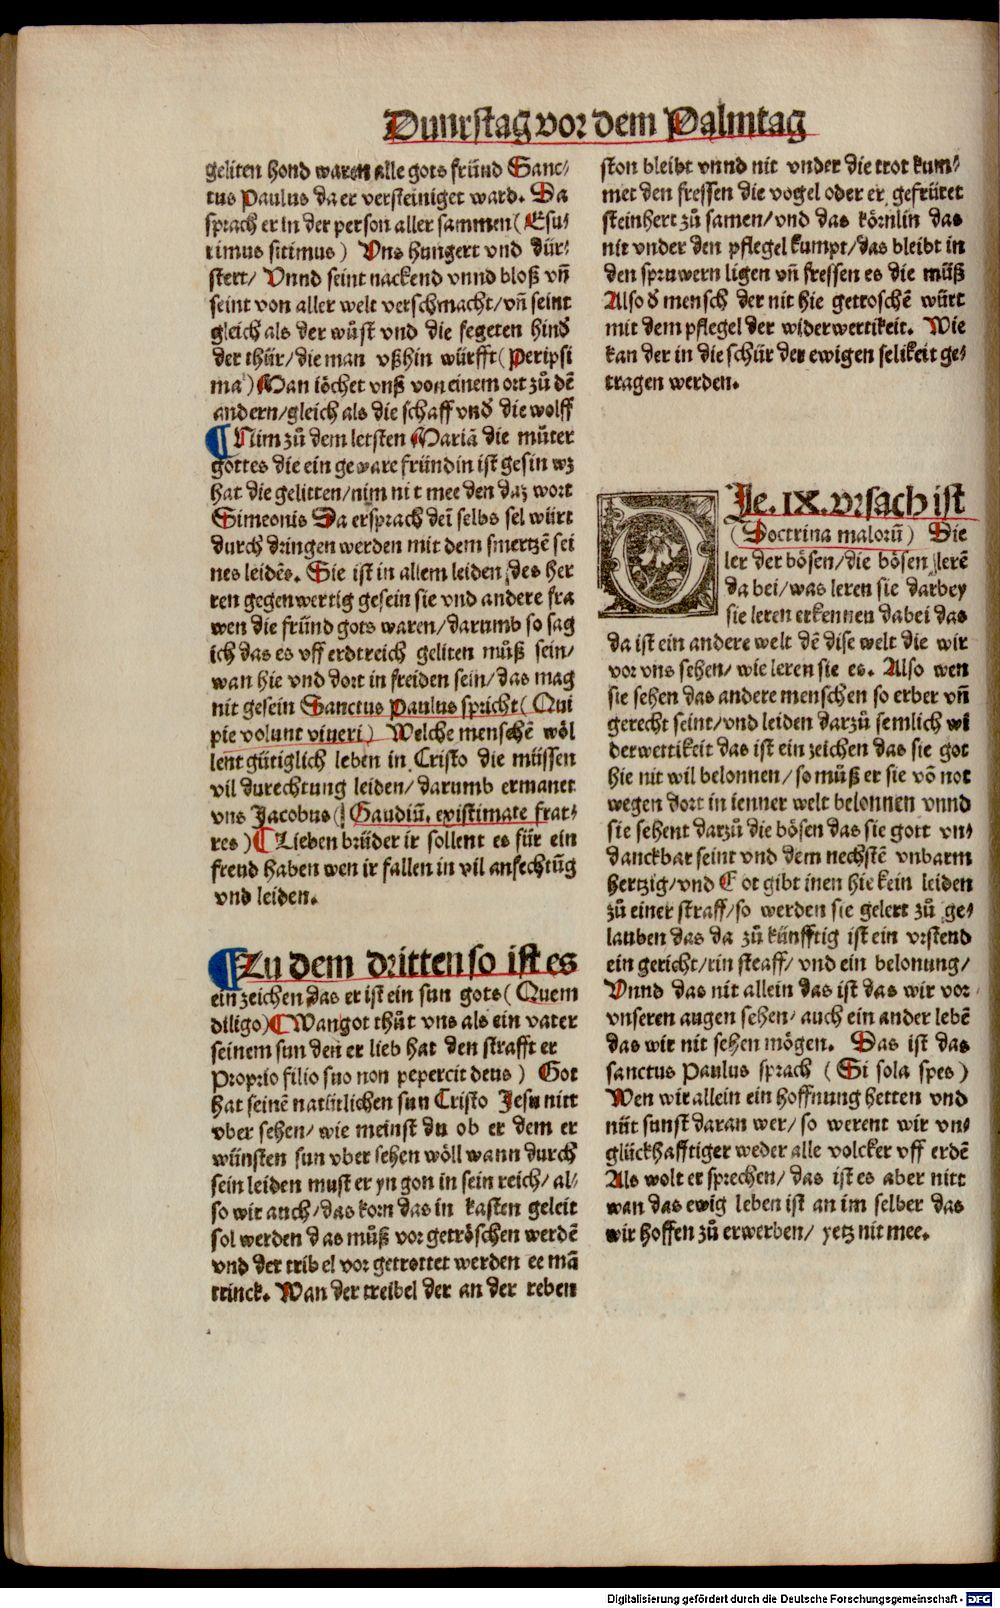 Dunrstag vor dem Palmtag
geliten hond waren alle gots fründ Sanc⸗
tus Paulus da er versteiniget ward. Da
sprach er in der person aller sammen (Esu⸗
rimus sitimus) Vns hungert vnd dür⸗
stert/ Vnnd seint nackend vnnd bloß vn̄
seint von aller welt verschmacht/ vn̄ seint
gleich als der wůst vnd die fegeten hind
der thür/ die man vßhin würfft (Peripsi
ma) Man iöchet vnß von einem ort zů dē
andern/ gleich als die schaff vnd die wolff
¶ Nim zů dem letsten Mariā die můter
gottes die ein geware fründin ist gesin wz
hat die gelitten/ nim nit mee den daz wort
Simeonis Da er sprach dein selbs sel würt
durch dringen werden mit dem smertzē sei
nes leidēs. Sie ist in allem leiden des her
ren gegenwertig gesein sie vnd andere fra
wen die fründ gots waren/ darumb so sag
ich das es vff erdtreich geliten můß sein/
wan hie vnd dort in freiden sein/ das mag
nit gesein Sanctus Paulus spricht (Qui
pie volunt viueri) Welche menschē wöl
lent gütiglich leben in Cristo die müssen
vil durechtung leiden/ darumb ermanet
vns Jacobus (Gaudiū. existimate frat⸗
res) ¶ Lieben brüder ir sollent es für ein
freud haben wen ir fallen in vil anfechtūg
vnd leiden.
¶ Zu dem dritten so ist es
ein zeichen das er ist ein sun gots (Quem
diligo) ¶ Wan got thůt vns als ein vater
seinem sun den er lieb hat den strafft er
Proprio filio suo non pepercit deus) Got
hat seinē natürlichen sun Cristo Jesu nitt
vber sehen/ wie meinst du ob er dem er
wünsten sun vber sehen wöll wann durch
sein leiden must er yn gon in sein reich/ al⸗
so wir auch/ das korn das in kasten geleit
sol werden das můß vor getröschen werdē
vnd der tribel vor getrottet werden ee mā
trinck. Wan der treibel der an der reben
ston bleibt vnnd nit vnder die trot kum⸗
met den fressen die vogel oder er gefrüret
steinhert zů samen/ vnd das körnlin das
nit vnder den pflegel kumpt/ das bleibt in
den spruwern ligen vn̄ fressen es die müß
Also d mensch der nit hie getroschē würt
mit dem pflegel der widerwertikeit. Wie
kan der in die schür der ewigen selikeit ge⸗
tragen werden.
DJe. IX. vrsach ist
(Doctrina malorū) Die
ler der bösen/ die bösen lerē
da bei/ was leren sie darbey
sie leren erkennen dabei das
da ist ein andere welt dē dise welt die wir
vor vns sehen/ wie leren sie es. Also wen
sie sehen das andere menschen so erber vn̄
gerecht seint/ vnd leiden darzů semlich wi
derwertikeit das ist ein zeichen das sie got
hie nit wil belonnen/ so můß er sie vō not
wegen dort in ienner welt belonnen vnnd
sie sehent darzů die bösen das sie gott vn⸗
danckbar seint vnd dem nechstē vnbarm
hertzig/ vnd Got gibt inen hie kein leiden
zů einer straff/ so werden sie gelert zů ge⸗
lauben das da zů künfftig ist ein vrstend
ein gericht/ ein steaff/ vnd ein belonung/
Vnnd das nit allein das ist das wir vor
vnseren augen sehen/ auch ein ander lebē
das wir nit sehen mögen. Das ist das
sanctus Paulus sprach (Si sola spes)
Wen wir allein ein hoffnung hetten vnd
nüt sunst daran wer/ so werent wir vn⸗
glückhafftiger weder alle volcker vff erdē
Als wolt er sprechen/ das ist es aber nitt
wan das ewig leben ist an im selber das
wir hoffen zů erwerben/ yetz nit mee.
Digitalisierung gefördert durch die Deutsche Forschungsgemeinschaft - DFG